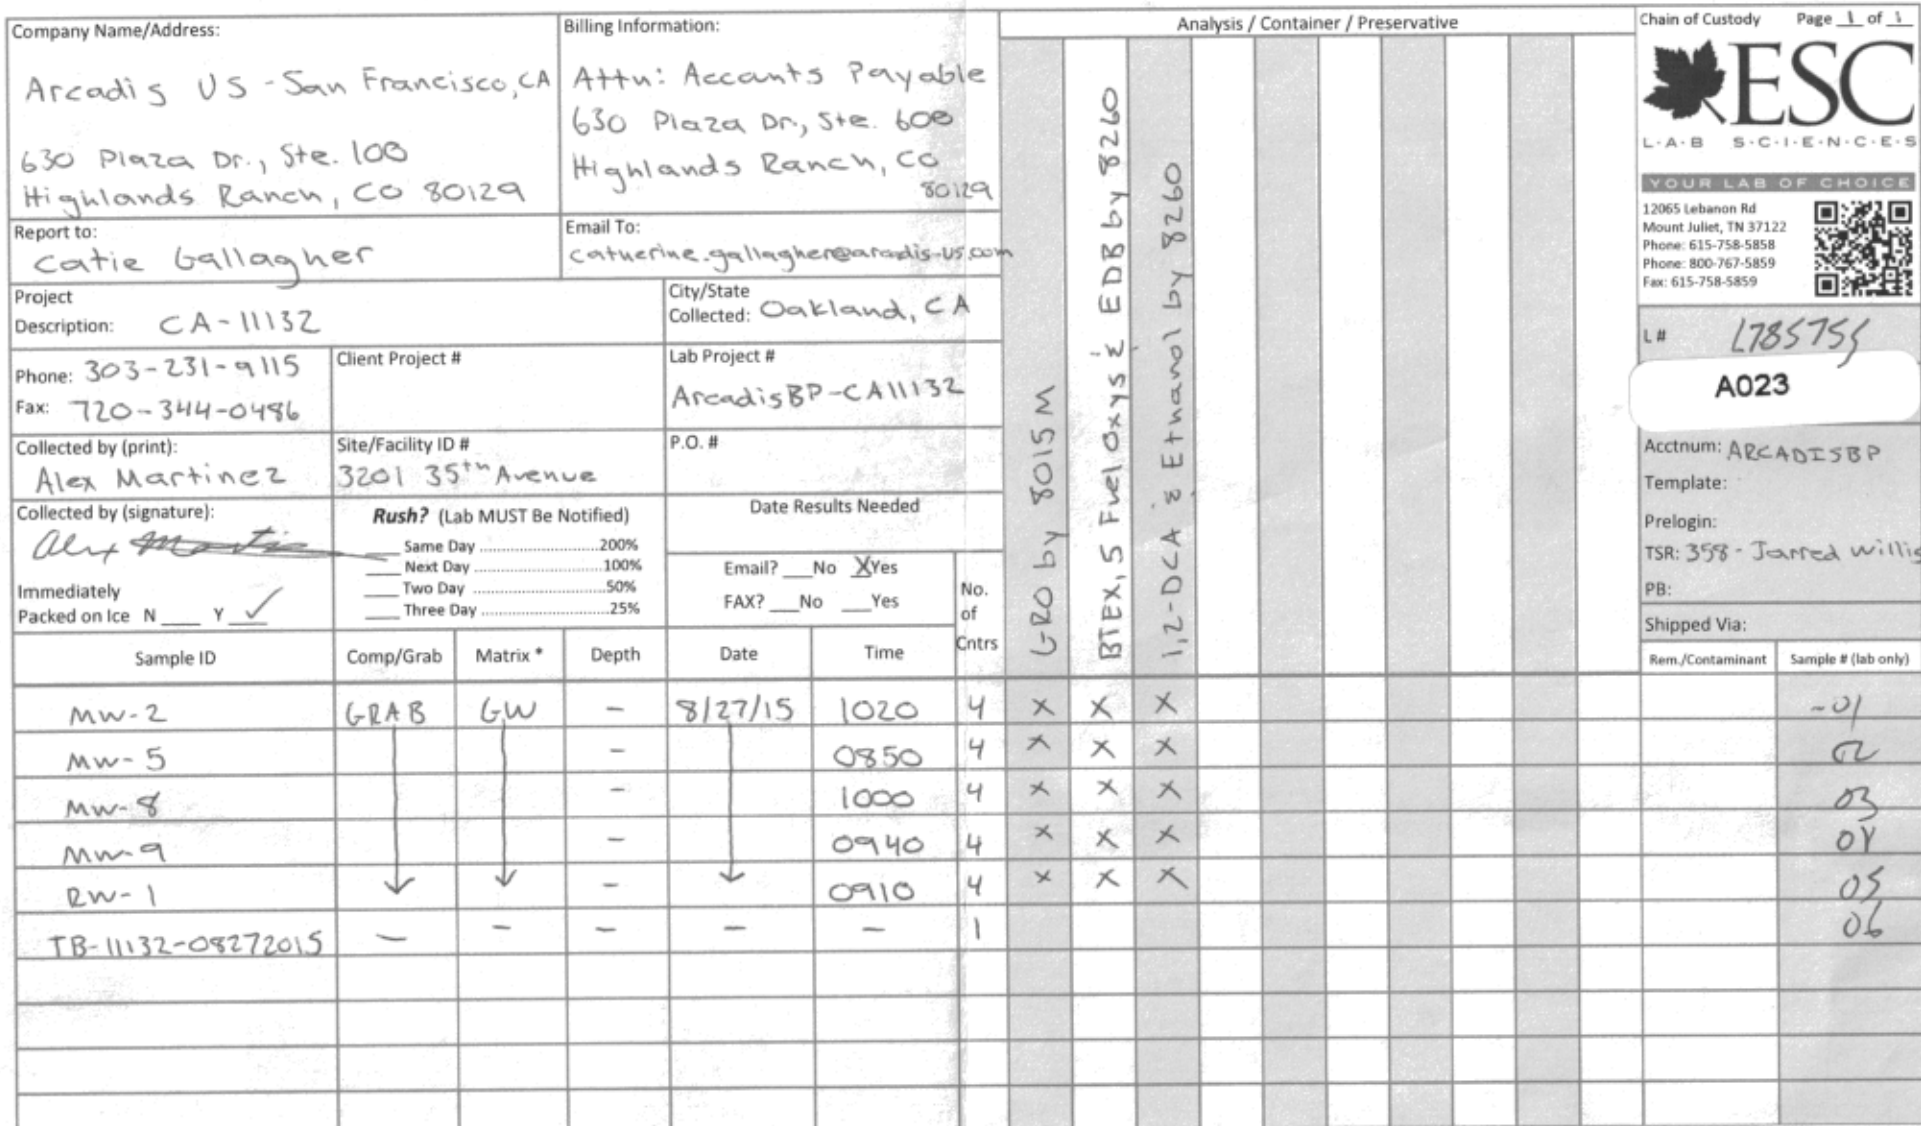 Company Name/Address:
Arcadis US - San Francisco, CA
630 Plaza Dr., Ste. 100
Highlands Ranch, CO 80129
Billing Information:
Attn: Accounts Payable
630 Plaza Dr., Ste. 600
Highlands Ranch, CO
80129
Report to:
Catie Gallagher
Email To:
catherine.gallagher@arcadis-us.com
Project
Description: CA-11132
City/State
Collected: Oakland, CA
Phone: 303-231-9115
Fax: 720-344-0486
Client Project #
Lab Project #
ArcadisBP-CA11132
Collected by (print):
Alex Martinez
Site/Facility ID #
3201 35th Avenue
P.O. #
Collected by (signature):
Alex
Immediately
Packed on Ice N ___ Y ✓
Rush? (Lab MUST Be Notified)
___ Same Day ...........................200%
___ Next Day ...........................100%
___ Two Day ...........................50%
___ Three Day ...........................25%
Date Results Needed
Email? ___No XYes
FAX? ___No ___Yes
No.
of
Cntrs
Analysis / Container / Preservative
GRO by 8015M
BTEX, 5 Fuel Oxys & EDB by 8260
1,2-DCA & Ethanol by 8260
Chain of Custody Page 1 of 1
ESC
L·A·B S·C·I·E·N·C·E·S
YOUR LAB OF CHOICE
12065 Lebanon Rd
Mount Juliet, TN 37122
Phone: 615-758-5858
Phone: 800-767-5859
Fax: 615-758-5859
L # L785755
A023
Acctnum: ARCADISBP
Template:
Prelogin:
TSR: 358 - Jarred Willis
PB:
Shipped Via:
Sample ID Comp/Grab Matrix * Depth Date Time Rem./Contaminant Sample # (lab only)
MW-2 GRAB GW - 8/27/15 1020 4 X X X -01
MW-5 - 0850 4 X X X 02
MW-8 - 1000 4 X X X 03
MW-9 - 0940 4 X X X 04
RW-1 - 0910 4 X X X 05
TB-11132-08272015 - - - - - 1 06